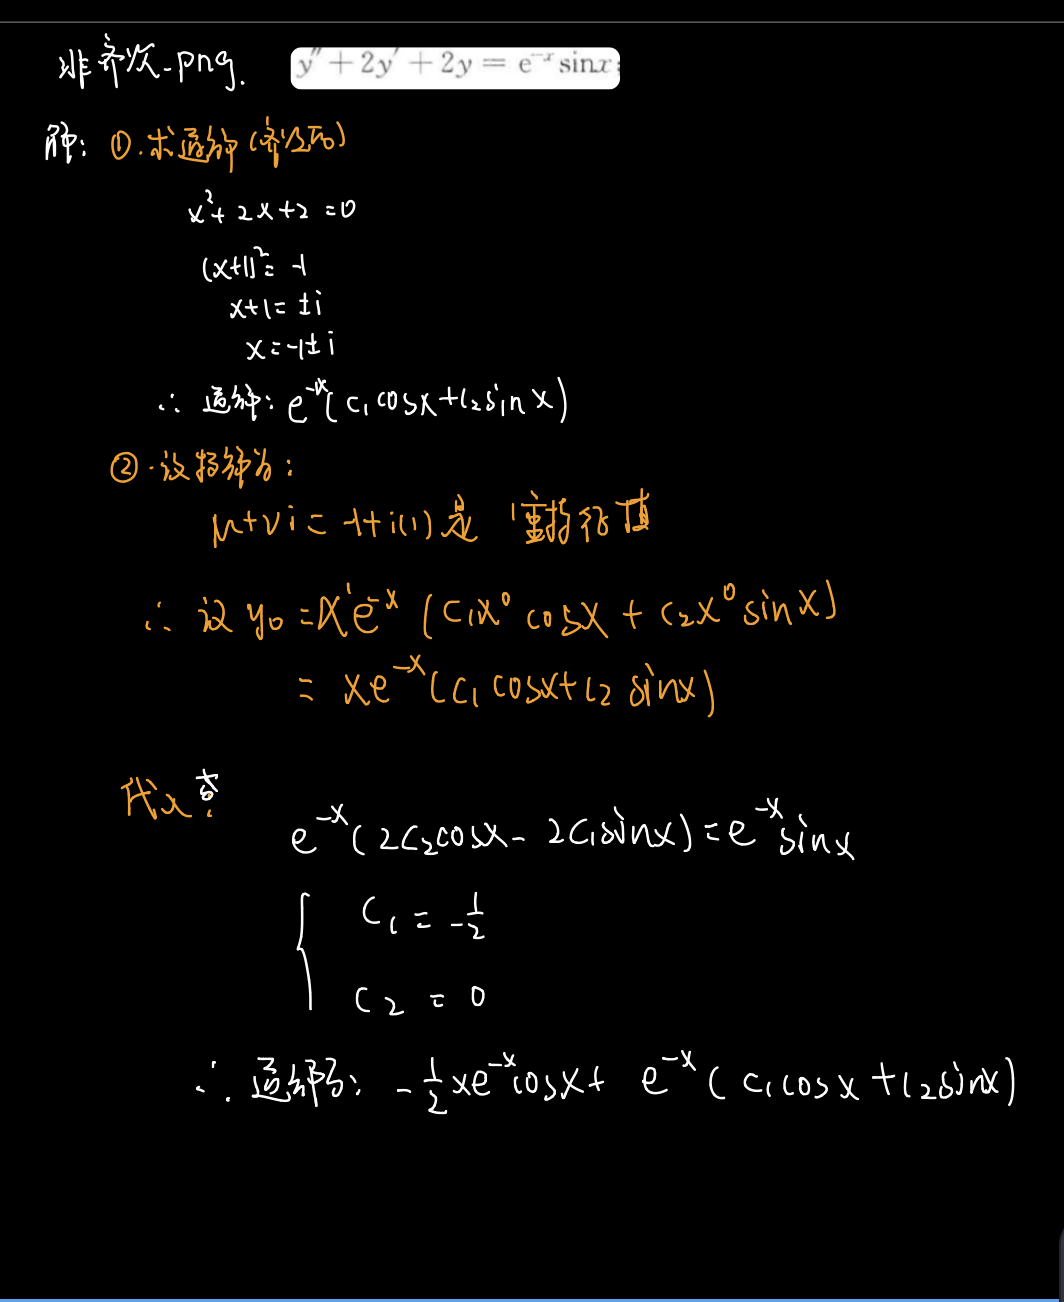 非齐次-png. y″+2y′+2y=e⁻ˣsinx;
解: ①.求通解(齐次=0)
x²+2x+2=0
(x+1)²=-1
x+1=±i
x=-1±i
∴ 通解: e⁻ˣ(c₁cosx+c₂sinx)
②.设特解为:
μ+νi=-1+i(1)是1重特征值
∴设y₀=x¹e⁻ˣ(c₁x⁰cosx+c₂x⁰sinx)
=xe⁻ˣ(c₁cosx+c₂sinx)
代入
e⁻ˣ(2c₂cosx-2c₁sinx)=e⁻ˣsinx
{ c₁=-1/2
c₂=0
∴.通解为: -1/2xe⁻ˣcosx+e⁻ˣ(c₁cosx+c₂sinx)